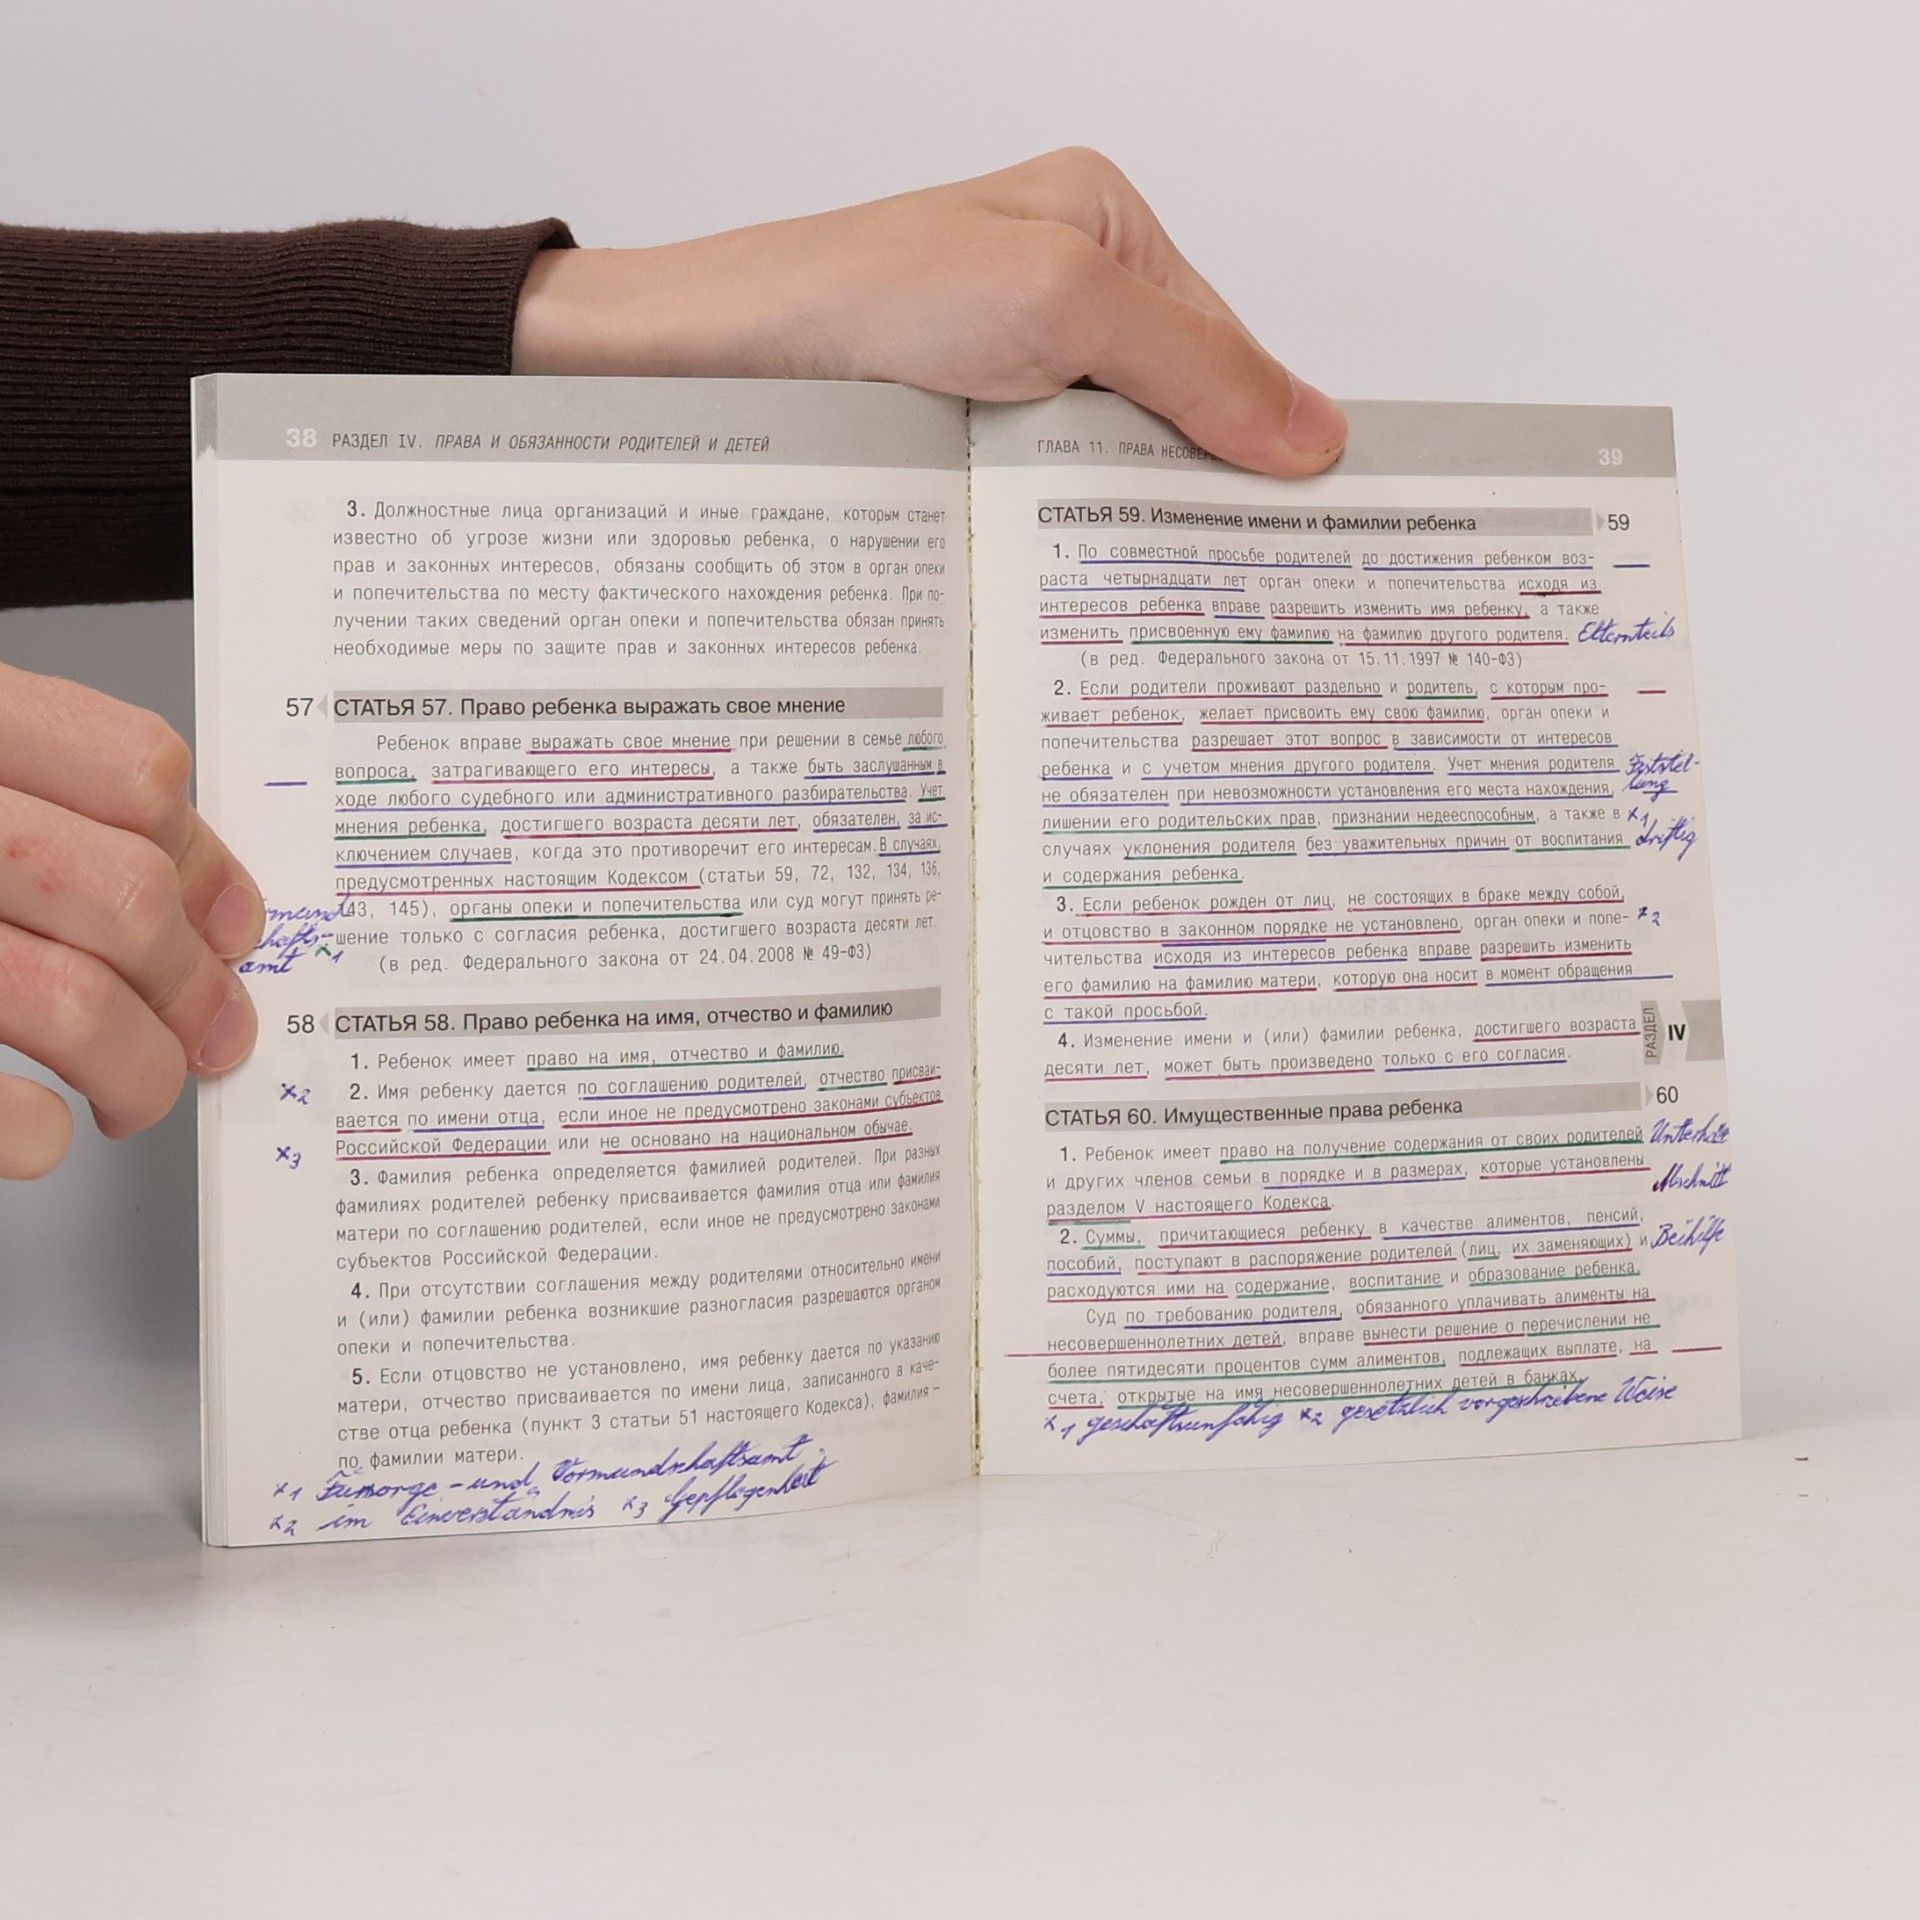 38 РАЗДЕЛ IV. ПРАВА И ОБЯЗАННОСТИ РОДИТЕЛЕЙ И ДЕТЕЙ
3. Должностные лица организаций и иные граждане, которым станет
известно об угрозе жизни или здоровью ребенка, о нарушении его
прав и законных интересов, обязаны сообщить об этом в орган опеки
и попечительства по месту фактического нахождения ребенка. При по-
лучении таких сведений орган опеки и попечительства обязан принять
необходимые меры по защите прав и законных интересов ребенка.
57 СТАТЬЯ 57. Право ребенка выражать свое мнение
Ребенок вправе выражать свое мнение при решении в семье любого
вопроса, затрагивающего его интересы, а также быть заслушанным в
ходе любого судебного или административного разбирательства. Учет
мнения ребенка, достигшего возраста десяти лет, обязателен, за ис-
ключением случаев, когда это противоречит его интересам. В случаях,
предусмотренных настоящим Кодексом (статьи 59, 72, 132, 134, 136,
143, 145), органы опеки и попечительства или суд могут принять ре-
шение только с согласия ребенка, достигшего возраста десяти лет.
amt x1
(в ред. Федерального закона от 24.04.2008 № 49-ФЗ)
58 СТАТЬЯ 58. Право ребенка на имя, отчество и фамилию
1. Ребенок имеет право на имя, отчество и фамилию.
x2 2. Имя ребенку дается по соглашению родителей, отчество присваи-
вается по имени отца, если иное не предусмотрено законами субъектов
x3 Российской Федерации или не основано на национальном обычае.
3. Фамилия ребенка определяется фамилией родителей. При разных
фамилиях родителей ребенку присваивается фамилия отца или фамилия
матери по соглашению родителей, если иное не предусмотрено законами
субъектов Российской Федерации.
4. При отсутствии соглашения между родителями относительно имени
и (или) фамилии ребенка возникшие разногласия разрешаются органом
опеки и попечительства.
5. Если отцовство не установлено, имя ребенку дается по указанию
матери, отчество присваивается по имени лица, записанного в каче-
стве отца ребенка (пункт 3 статьи 51 настоящего Кодекса), фамилия -
по фамилии матери.
x1 Fürsorge- und Vormundschaftsamt
x2 im Einverständnis x3 Gepflogenheit
ГЛАВА 11. ПРАВА 39
СТАТЬЯ 59. Изменение имени и фамилии ребенка 59
1. По совместной просьбе родителей до достижения ребенком воз-
раста четырнадцати лет орган опеки и попечительства исходя из
интересов ребенка вправе разрешить изменить имя ребенку, а также
изменить присвоенную ему фамилию на фамилию другого родителя. Elternteils
(в ред. Федерального закона от 15.11.1997 № 140-ФЗ)
2. Если родители проживают раздельно и родитель, с которым про-
живает ребенок, желает присвоить ему свою фамилию, орган опеки и
попечительства разрешает этот вопрос в зависимости от интересов
ребенка и с учетом мнения другого родителя. Учет мнения родителя Feststel-
не обязателен при невозможности установления его места нахождения, lung
лишении его родительских прав, признании недееспособным, а также в x1
случаях уклонения родителя без уважительных причин от воспитания triftig
и содержания ребенка.
3. Если ребенок рожден от лиц, не состоящих в браке между собой,
и отцовство в законном порядке не установлено, орган опеки и попе- x2
чительства исходя из интересов ребенка вправе разрешить изменить
его фамилию на фамилию матери, которую она носит в момент обращения
с такой просьбой.
4. Изменение имени и (или) фамилии ребенка, достигшего возраста
десяти лет, может быть произведено только с его согласия.
РАЗДЕЛ IV
СТАТЬЯ 60. Имущественные права ребенка 60
1. Ребенок имеет право на получение содержания от своих родителей Unterhalt
и других членов семьи в порядке и в размерах, которые установлены
разделом V настоящего Кодекса. Abschnitt
2. Суммы, причитающиеся ребенку в качестве алиментов, пенсий,
пособий, поступают в распоряжение родителей (лиц, их заменяющих) и Beihilfe
расходуются ими на содержание, воспитание и образование ребенка.
Суд по требованию родителя, обязанного уплачивать алименты на
несовершеннолетних детей, вправе вынести решение о перечислении не
более пятидесяти процентов сумм алиментов, подлежащих выплате, на
счета, открытые на имя несовершеннолетних детей в банках.
x1 geschäftsunfähig x2 gesetzlich vorgeschriebene Weise